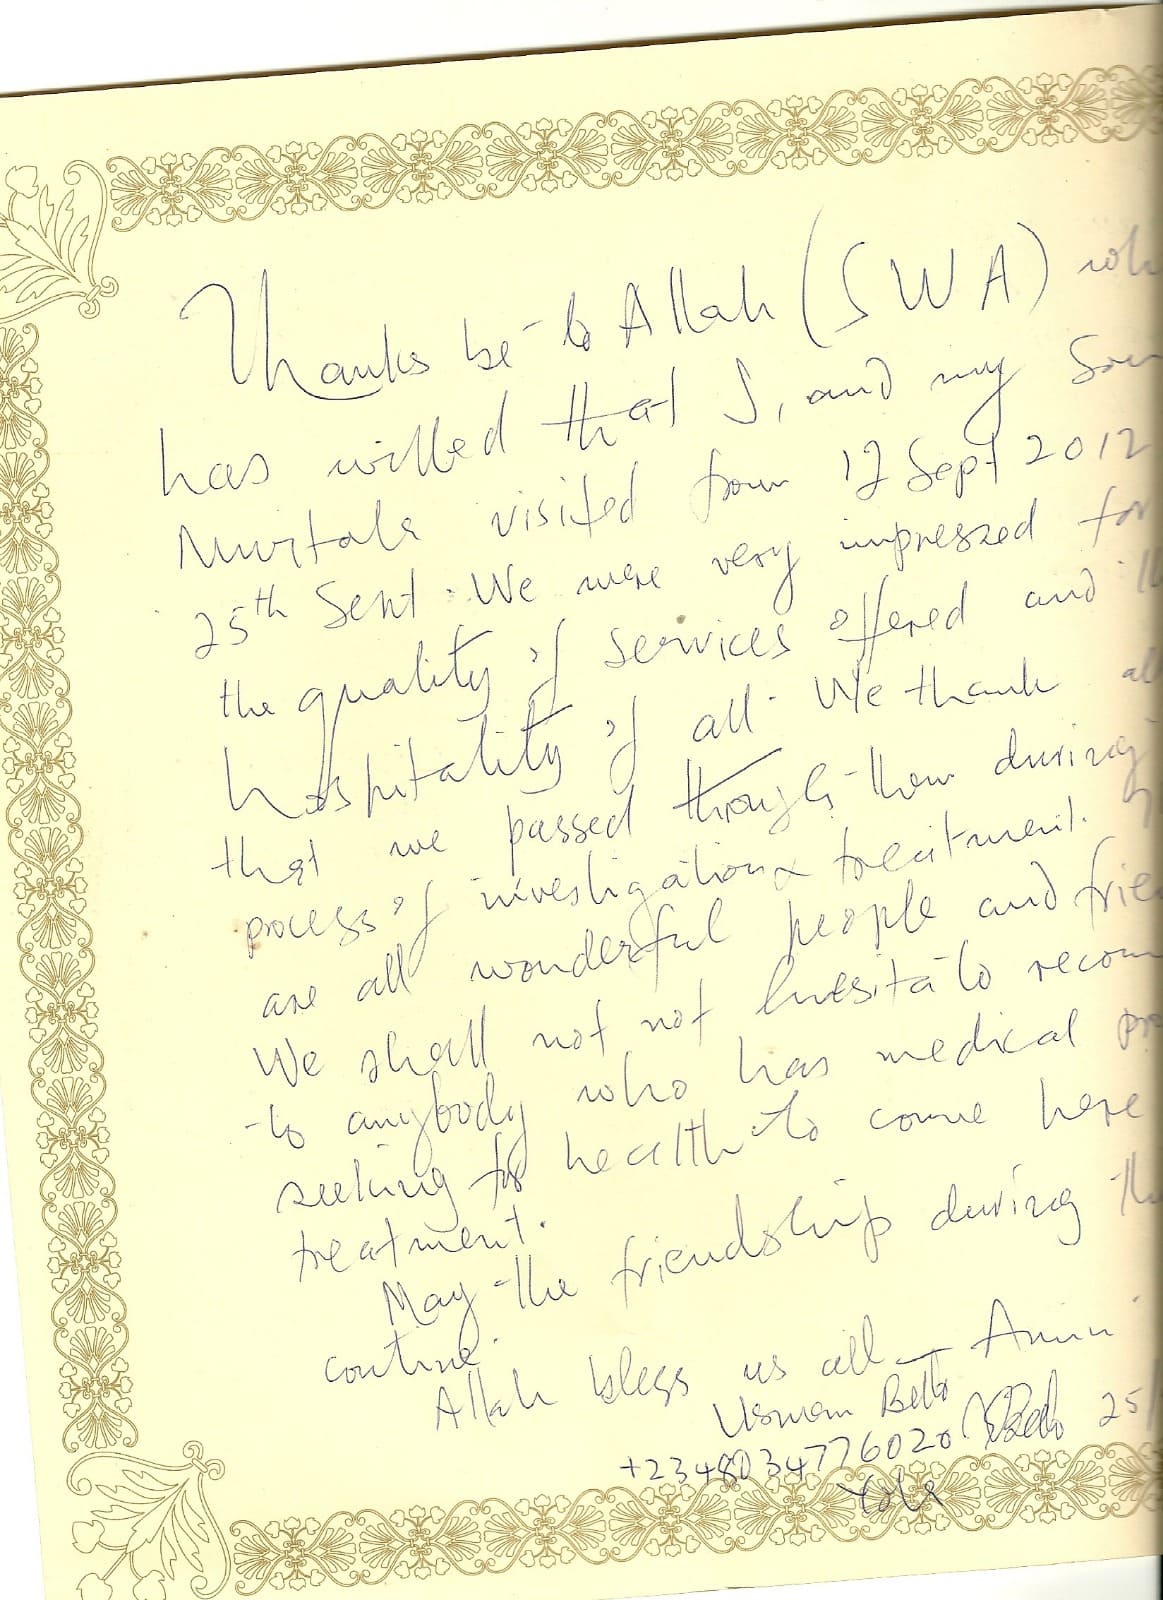 Thanks be to Allah (SWA)
has willed that I, and my Son
Murtala visited from 12 Sept 2012
25th Sept. We were very impressed for
the quality of services offered and
hospitality of all. We thank all
that we passed through them during
process of investigation & treatment.
are all wonderful people and
We shall not not huesita to recom
to anybody who has medical
seeking for health to come here
treatment.
May the friendship during
contine.
Allah bless us all - Amin
Usman Bello
+2348034776020 25/
Yola